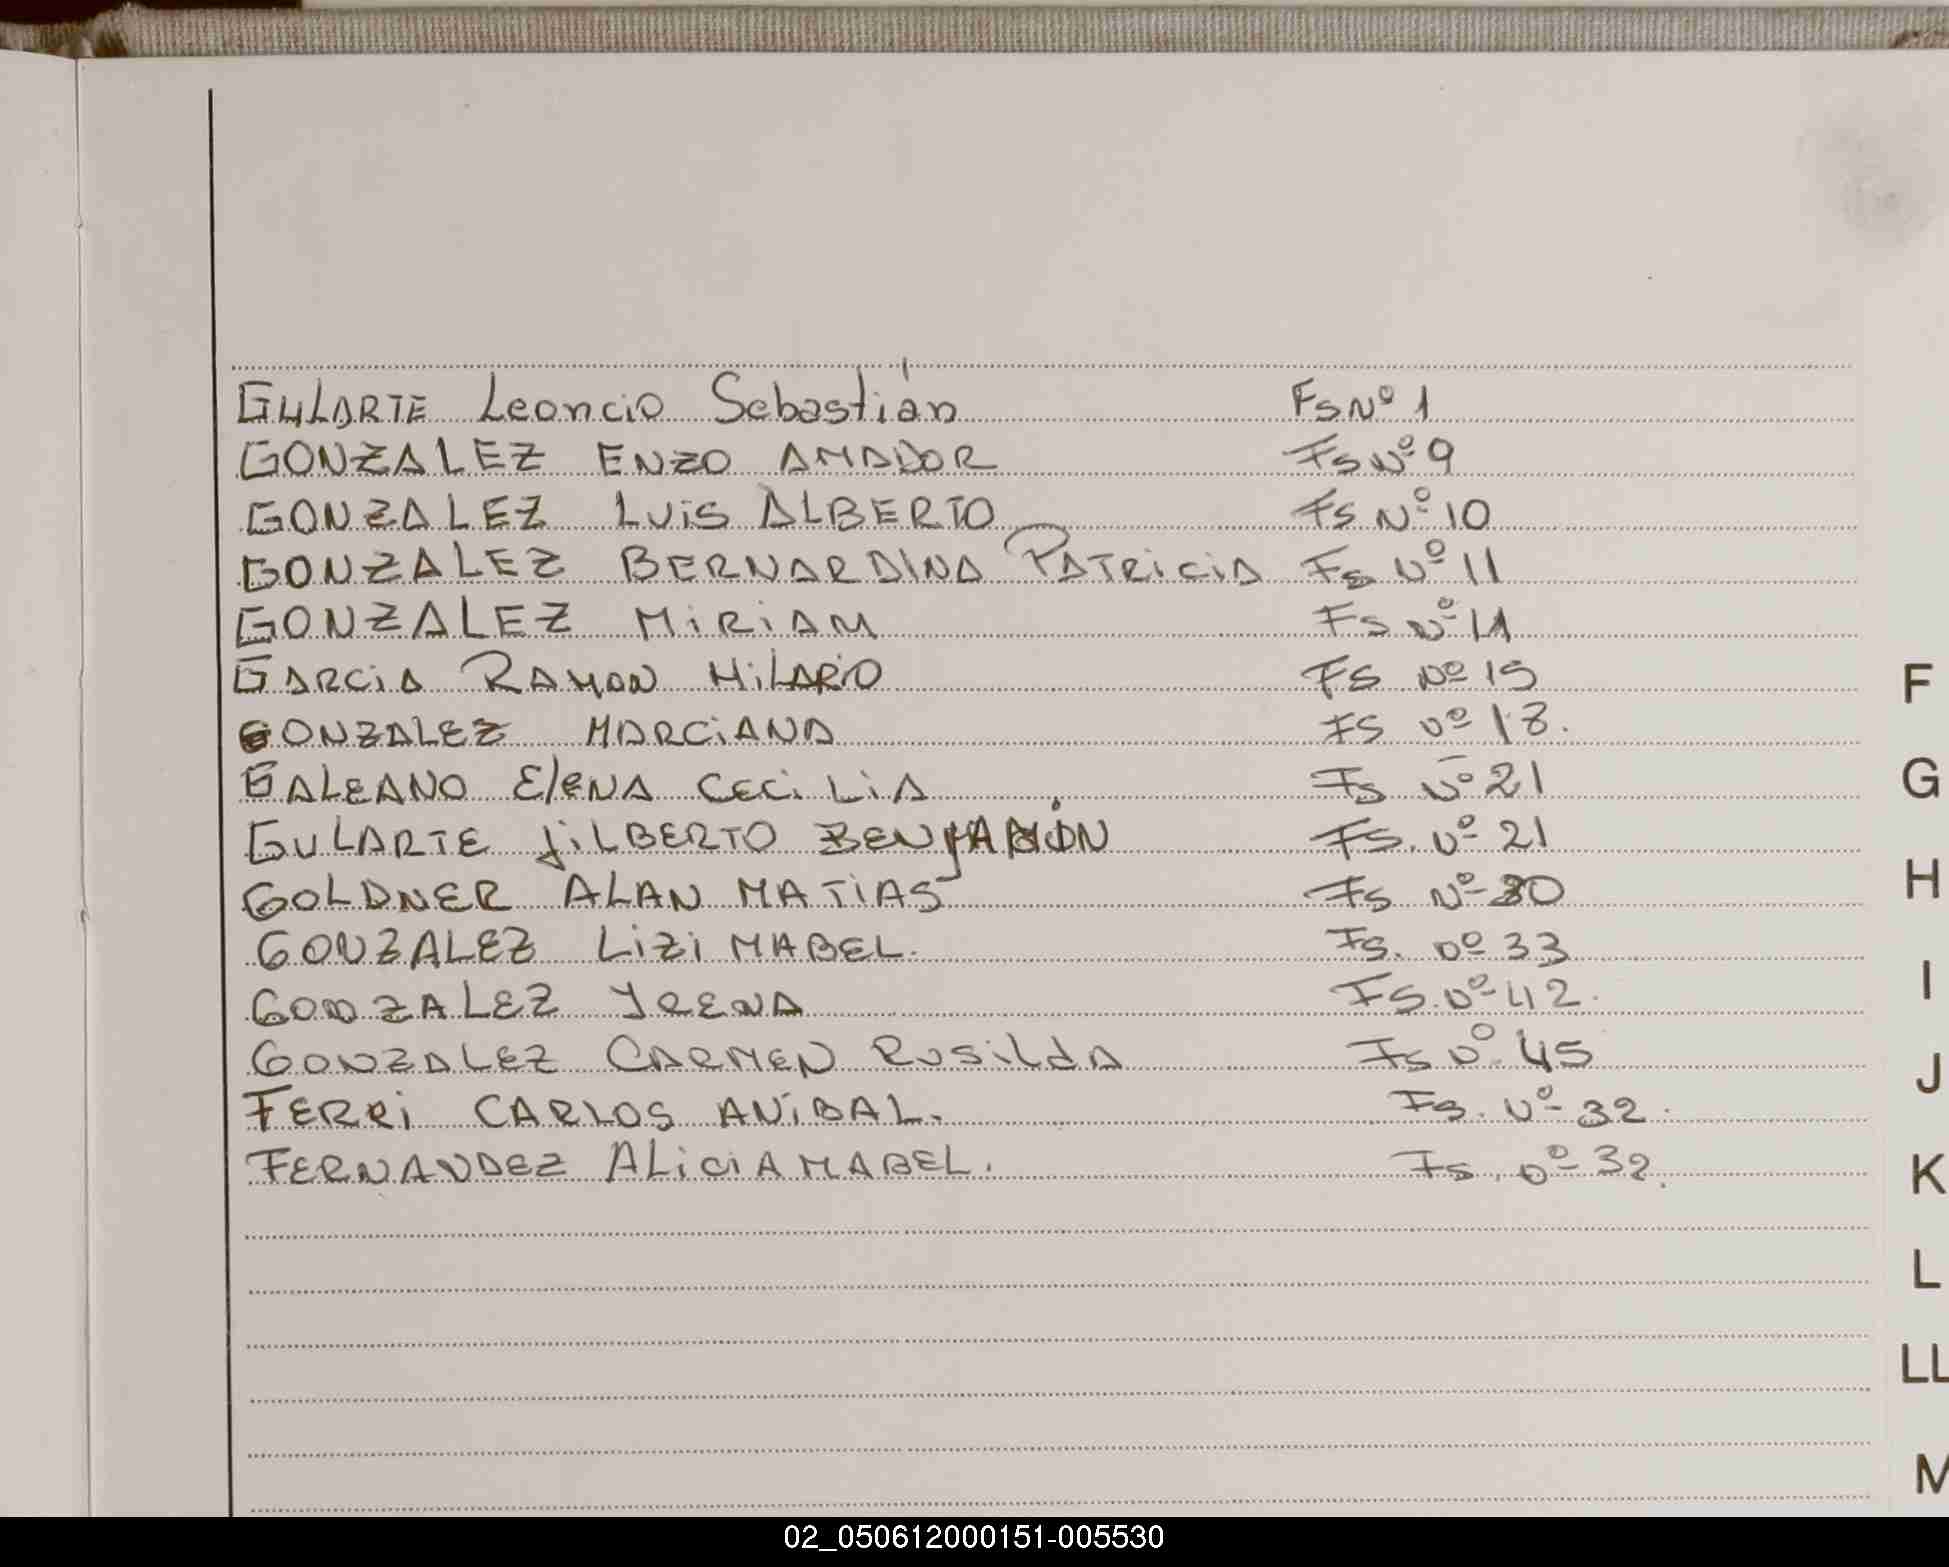 GULARTE Leoncio Sebastián Fs Nº 1
GONZALEZ ENZO AMADOR Fs Nº 9
GONZALEZ LUIS ALBERTO Fs Nº 10
GONZALEZ BERNARDINA PATRICIA Fs Nº 11
GONZALEZ MIRIAM Fs Nº 11
GARCIA RAMON HILARIO FS Nº 15
GONZALEZ MARCIANA FS Nº 18.
GALEANO ElENA CECILIA Fs Nº 21
GULARTE JILBERTO BENJAMIN FS. Nº 21
GOLDNER ALAN MATIAS Fs Nº 30
GONZALEZ LIZI MABEL. Fs. Nº 33
GONZALEZ YRENA FS. Nº 42.
GONZALEZ CARMEN ROSILdA Fs Nº 45
FERRI CARLOS ANIBAL. Fs. Nº 32.
FERNANDEZ ALICIA MABEL. Fs. Nº 32.
F
G
H
I
J
K
L
LL
M
02_050612000151-005530